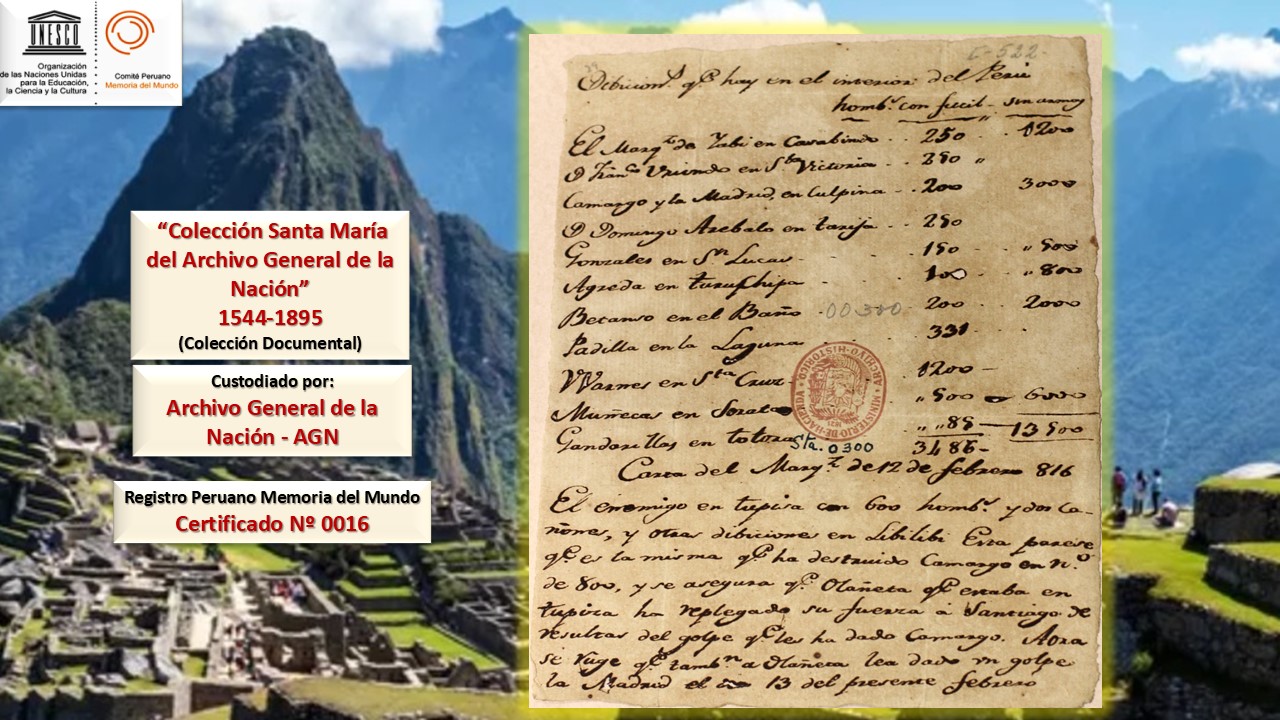 UNESCO
Organización
de las Naciones Unidas
para la Educación,
la Ciencia y la Cultura
Comité Peruano
Memoria del Mundo
“Colección Santa María
del Archivo General de la
Nación”
1544-1895
(Colección Documental)
Custodiado por:
Archivo General de la
Nación - AGN
Registro Peruano Memoria del Mundo
Certificado Nº 0016
C-522-
q.e hay en el interior del Perú
homb.s con fucil - sin armas
El Marq.s de Yabi en Casabindo - - 250 - - 1200
D Fran.co Uriondo en S.ta Victoria - - 250 "
Camargo y la Madrid, en Culpina - - 200 3000
D Domingo Arebalo en tarija - - 250
Gonzales en S.n Lucas - 150 " 500
Agreda en - 100 - " 800
Betanso en el Baño - 00300 200 2000
Padilla en la Laguna 331
Warnes en S.ta Cruz 1200 -
Muñecas en Sorata " 500 - 6000
Gandarillas en totora " " 85 - 13500
Sta. 0300 3486 -
MINISTERIO DE HACIENDA ARCHIVO HISTORICO
Carta del Marq.s de 12 de febrero 816
El enemigo en tupisa con 600 homb.s y dos ca-
ñones, y otras dibiciones en Libilibi Esta parese
q.e es la misma q.e ha destruido Camargo en n.o
de 800, y se asegura q.e Olañeta q.e estaba en
tupisa ha replegado su fuerza á Santiago de
resultas del golpe q.e les ha dado Camargo. Aora
se ruge q.e tamb.n a Olañeta lea dado un golpe
la Madrid el 13 del presente febrero